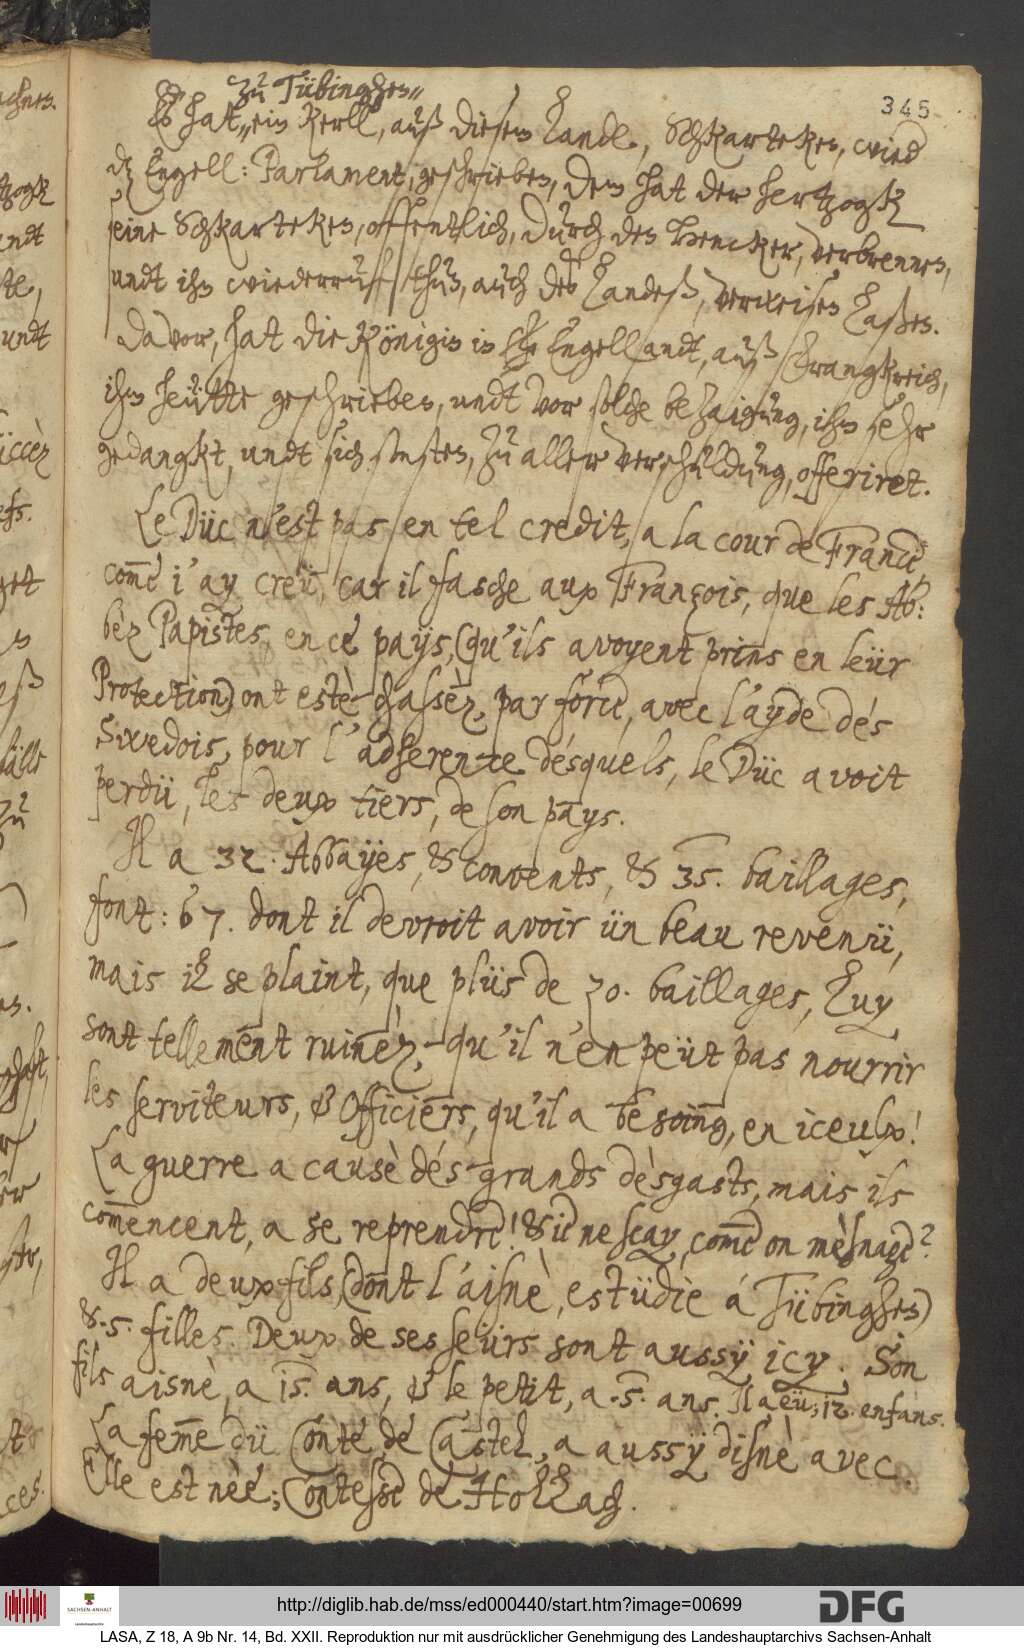 zu Tübinghen„
345
Es hat„ ein Kerll, auß diesem Lande, Schkarteken, wied
dz Engell: Parlament, geschrieben, dem hat der hertzogk
seine Schkarteken, offentlich, durch den Hencker, verbrennen,
undt ihn wiederruff thun, auch deß Landeß, verweisen Laßen.
Davor, hat die Königin in Engellandt, auß Frangkreich,
ihm heütte geschrieben, undt vor solche bezaigung, ihm sehr
gedangkt, undt sich sonsten, zu aller verschuldung, offeriret.
Le Düc n'est pas en tel credit, a la cour de France,
com̄e i'ay creü, car il fasche aux François, que les Ab:
bèz Papistes, en ce païs, (qu'ils avoyent prins en leür
Protection) ont estè chassèz, par force, avec l'ayde dés
Swedois, pour l'adherence désquels, le Düc avoit
perdü, les deux tiers, de son pays.
Il a 32. Abbayes, & convents, & 35. baillages,
font: 67. dont il devroit avoir ün beau revenü,
mais il se plaint, que plüs de 30. baillages, Luy
sont tellement ruinèz, qu'il n'en peüt pas nourrir
les serviteurs, & Officiers, qu'il a besoing, en iceulx!
La guerre a causè dés grands dèsgasts, mais ils
com̄encent, a se reprendre! & ie ne scay, com̄e on mèsnage?
Il a deux fils, (dont l'aisnè, estüdie á Tübinghen)
&. 5. filles. Deux de ses seürs sont aussÿ icy. Son
fils aisnè, a 15. ans, & le petit, a .5. ans. Il a eü, 12. enfans.
La fem̄e dü Conte de Castel, a aussÿ disnè avec.
Elle est nèe; Contesse de Hollach.
http://diglib.hab.de/mss/ed000440/start.htm?image=00699
DFG
SACHSEN-ANHALT
LASA, Z 18, A 9b Nr. 14, Bd. XXII. Reproduktion nur mit ausdrücklicher Genehmigung des Landeshauptarchivs Sachsen-Anhalt